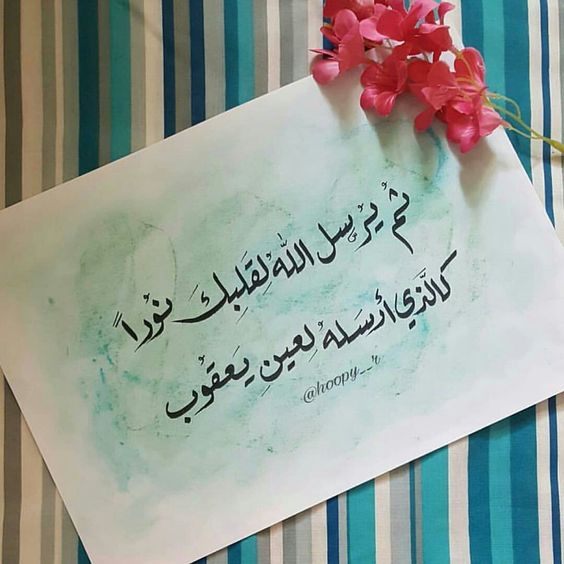 ثم يرسل الله لقلبك نوراً
كالَّذي أرسله لعين يعقوب
@hoopy__r